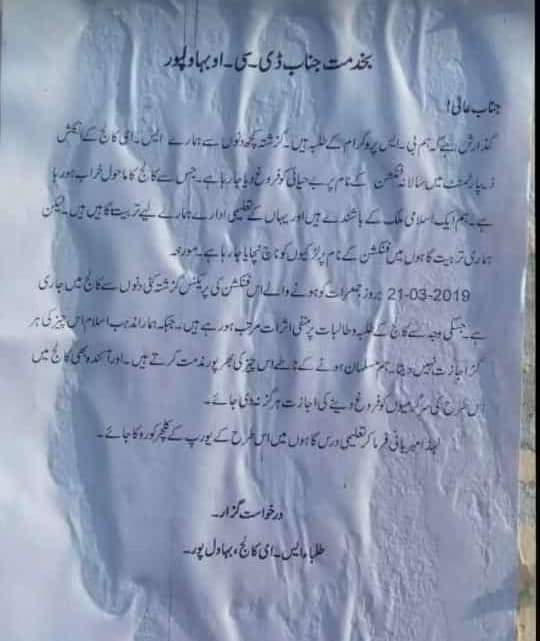 بخدمت جناب ڈی۔سی۔او بہاولپور
جناب عالی!
گذارش ہے کہ ہم بی۔ایس پروگرام کے طلبہ ہیں۔ گزشتہ کچھ دنوں سے ہمارے ایس۔ای کالج کے انگلش
ڈیپارٹمنٹ میں سالانہ فنکشن کے نام پر بے حیائی کو فروغ دیا جا رہا ہے۔ جس سے کالج کا ماحول خراب ہو رہا
ہے۔ ہم ایک اسلامی ملک کے باشندے ہیں اور یہاں کے تعلیمی ادارے ہمارے لیے تربیت گاہیں ہیں۔ لیکن
ہماری تربیت گاہوں میں فنکشن کے نام پر لڑکیوں کو ناچ نچایا جا رہا ہے۔ مورخہ
21-03-2019 بروز جمعرات کو ہونے والے اس فنکشن کی پریکٹس گزشتہ کئی دنوں سے کالج میں جاری
ہے۔ جسکی وجہ سے کالج کے طلبہ و طالبات پر منفی اثرات مرتب ہو رہے ہیں۔ جبکہ ہمارا مذہب اسلام اس چیز کی ہر
گز اجازت نہیں دیتا۔ ہم مسلمان ہونے کے ناطے اس چیز کی بھرپور مذمت کرتے ہیں۔ اور آئندہ بھی کالج میں
اس طرح کی سرگرمیوں کو فروغ دینے کی اجازت ہرگز نہ دی جائے۔
لہذا مہربانی فرما کر تعلیمی درس گاہوں میں اس طرح کے یورپ کے کلچر کو روکا جائے۔
درخواست گزار۔
طلباء ایس۔ای کالج، بہاول پور۔